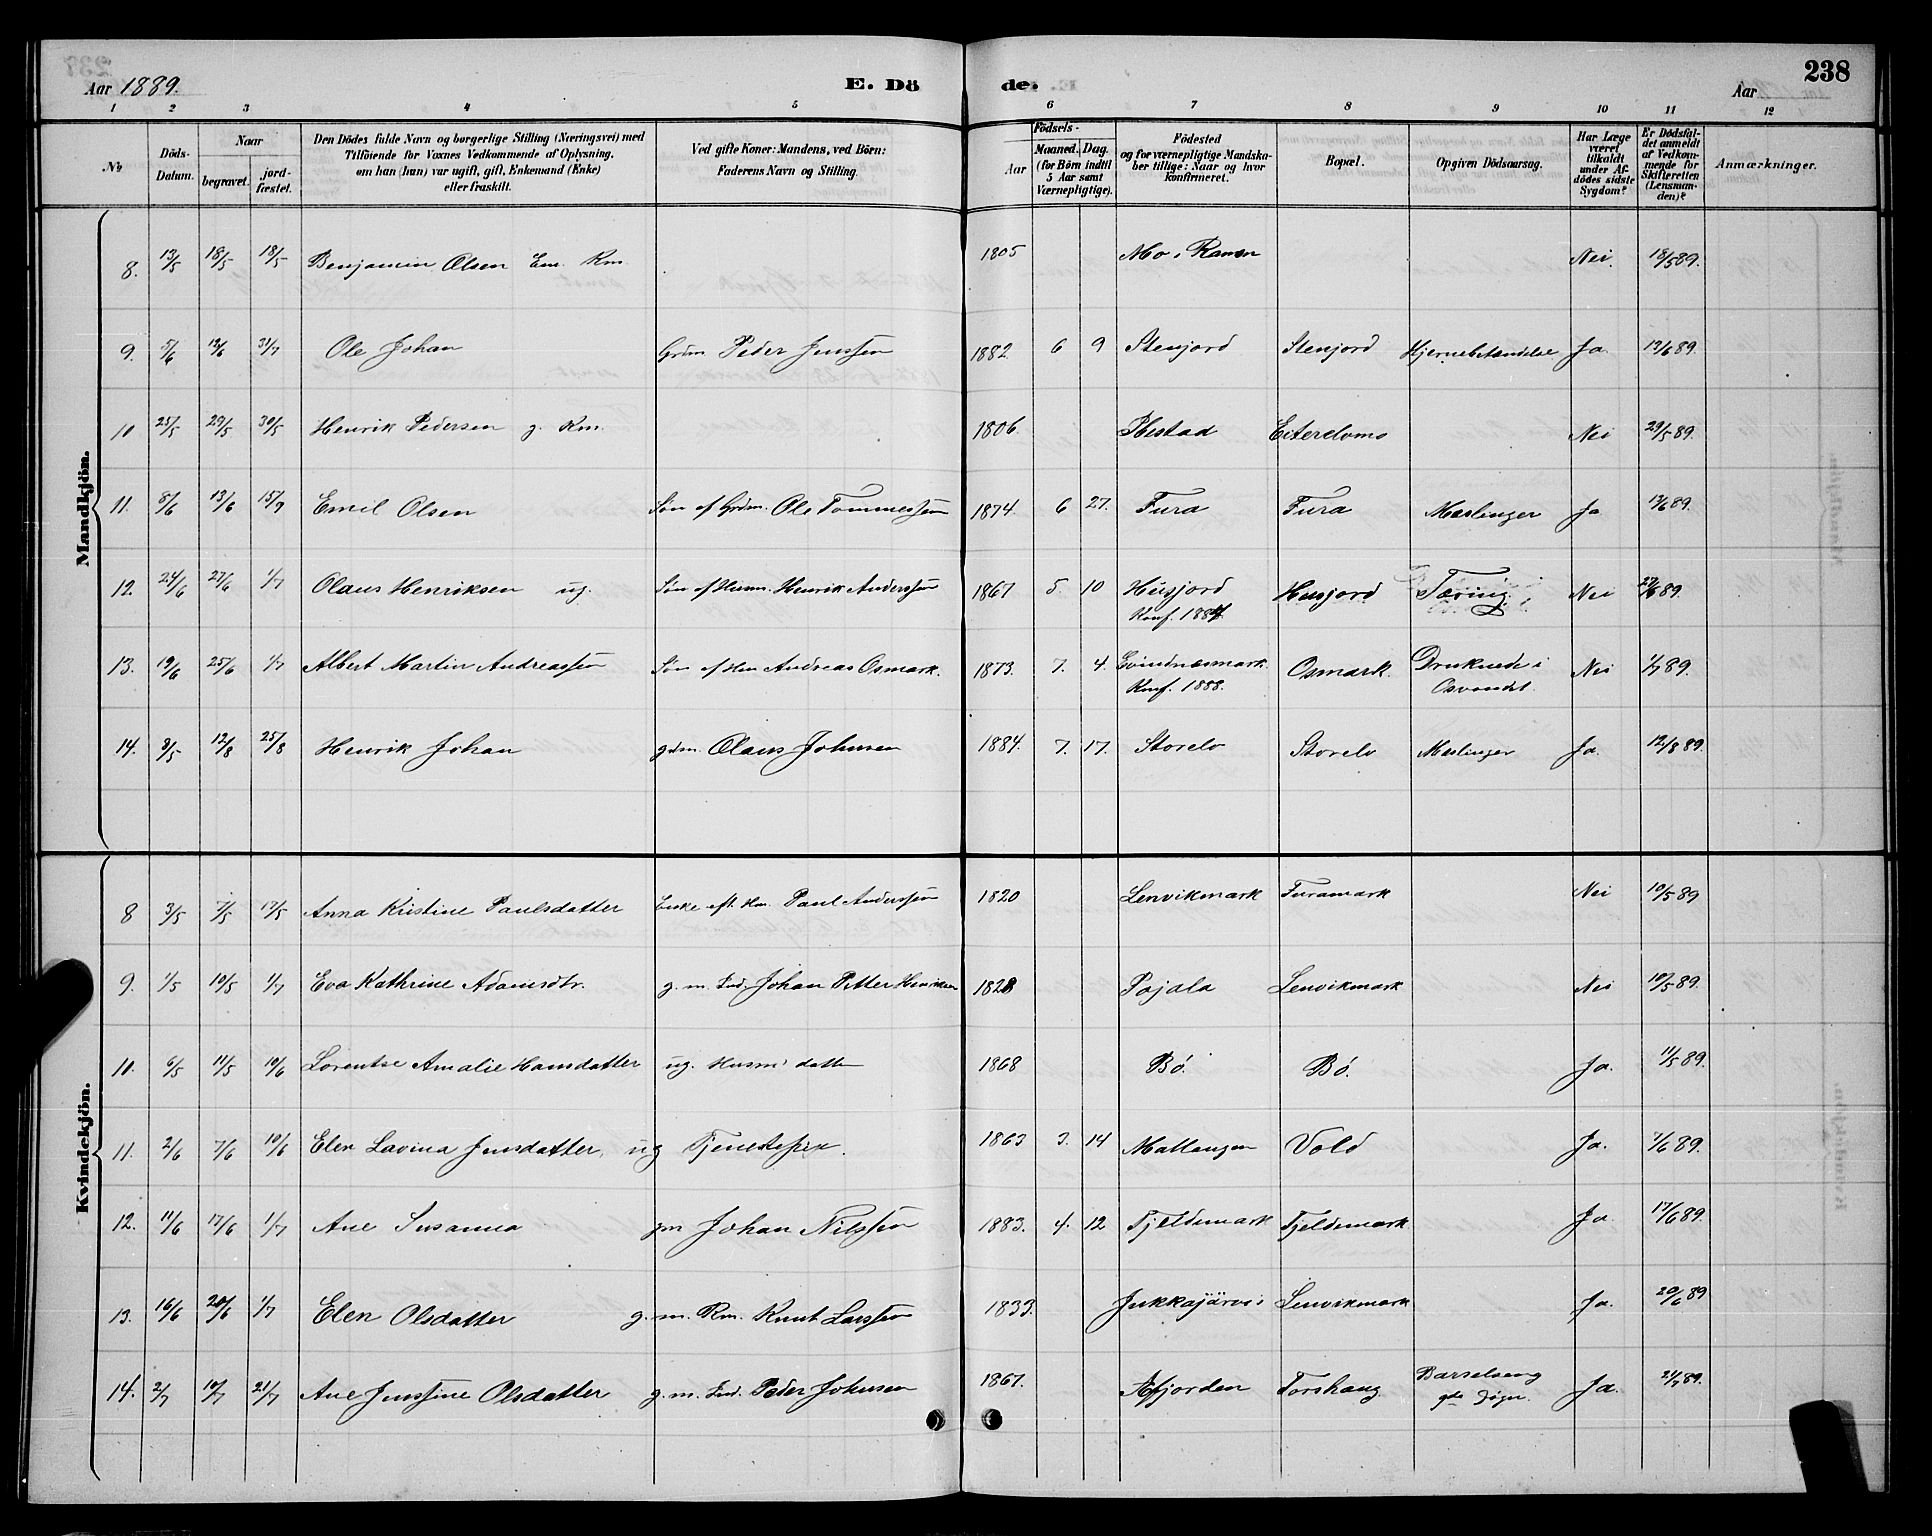 238
Aar 1889.
E. Dö
de.
Aar
1 2 3 4 5 6 7 8 9 10 11 12
No
Döds-Datum.
Naar
begravet.
jord-fæstet.
Den Dödes fulde Navn og borgerlige Stilling (Næringsvei) med Tilföiende for Voxnes Vedkommende af Oplysning, om han (hun) var ugift, gift, Enkemand (Enke) eller fraskilt.
Ved gifte Koner: Mandens, ved Börn: Faderens Navn og Stilling.
Födsels-
Aar
Maaned. Dag.
(for Börn indtil 5 Aar samt Værnepligtige).
Födested og for værnepligtige Mandskaber tillige: Naar og hvor konfirmeret.
Bopæl.
Opgiven Dödsaarsag.
Har Læge været tilkaldt under Afdödes sidste Sygdom?
Er Dödsfaldet anmeldt af Vedkommende for Skifteretten (Lensmanden)?
Anmærkninger.
Mandkjön.
8. 13/5 18/5 18/5 Benjamin Olsen Em. Rm. 1805 Mo i Ranen Nei 18/5 89.
9. 5/6 12/6 31/7 Ole Johan Grdm Peder Jenssen 1882 6 9 Stenjord Stenjord Hjernebetændelse Ja 12/6 89.
10 25/5 29/5 30/5 Henrik Pedersen g. Rm. 1806. Ibestad Eiterelvmo Nei 29/5 89.
11. 8/6 13/6 15/7 Emil Olsen Søn af Grdm. Ole Tommessen 1874. 6 27. Fura Fura Mæslinger Ja 12/6 89.
12. 24/6 27/6 1/7 Olaus Henriksen ug. Søn af Husm. Henrik Anderssen 1867 5. 10 Husjord Husjord Tæring Nei 27/6 89.
Konf. 1884.
13. 19/6 25/6 1/7 Albert Martin Andreassen Søn af Hm Andreas Osmark. 1873. 7. 4. Evindnesmark. Osmark. Druknede i Nei 1/7 89.
Konf. 1888. Osvandet.
14. 8/5 12/8 25/8 Henrik Johan grdm. Olaus Johnsen 1884. 7. 17. Storelv Storelv Mæslinger Ja. 12/8 89.
Kvindekjön.
8 3/5 7/5 12/5 Anna Kristine Paulsdatter Enke eft. Hm. Paul Anderssen 1820 Lenvikmark Furamark Nei 10/5 89
9. 1/5 10/5 1/7 Eva Kathrine Adamsdtr. g. m. Ind. Johan Petter Henriksen 1828 Pajala Lenvikmark Nei 10/5 89.
10. 6/5 11/5 10/6 Lorentse Amalie Hansdatter ug. Husm' datter 1868 Bø. Bø. Ja. 11/5 89.
11. 2/6 7/6 10/6 Elen Lavina Jensdatter, ug Tjenestepige. 1863 3. 14 Malangen Vold Ja. 7/6 89.
12. 11/6 17/6 1/7 Ane Susanna gm Johan Nilssen 1883. 4. 12 Fjeldmark Fjeldmark Ja. 17/6 89.
13. 16/6 20/6 1/7 Elen Olsdatter g. m. Rm. Knut Larssen 1833. Jukkasjärvi Lenvikmark Ja. 20/6 89
14. 2/7 10/7 21/7 Ane Jenssine Olsdatter g. m. Ind. Peder Johnsen 1867. Aafjorden Forshaug Barselseng Ja. 21/7 89.
9de Døgn.